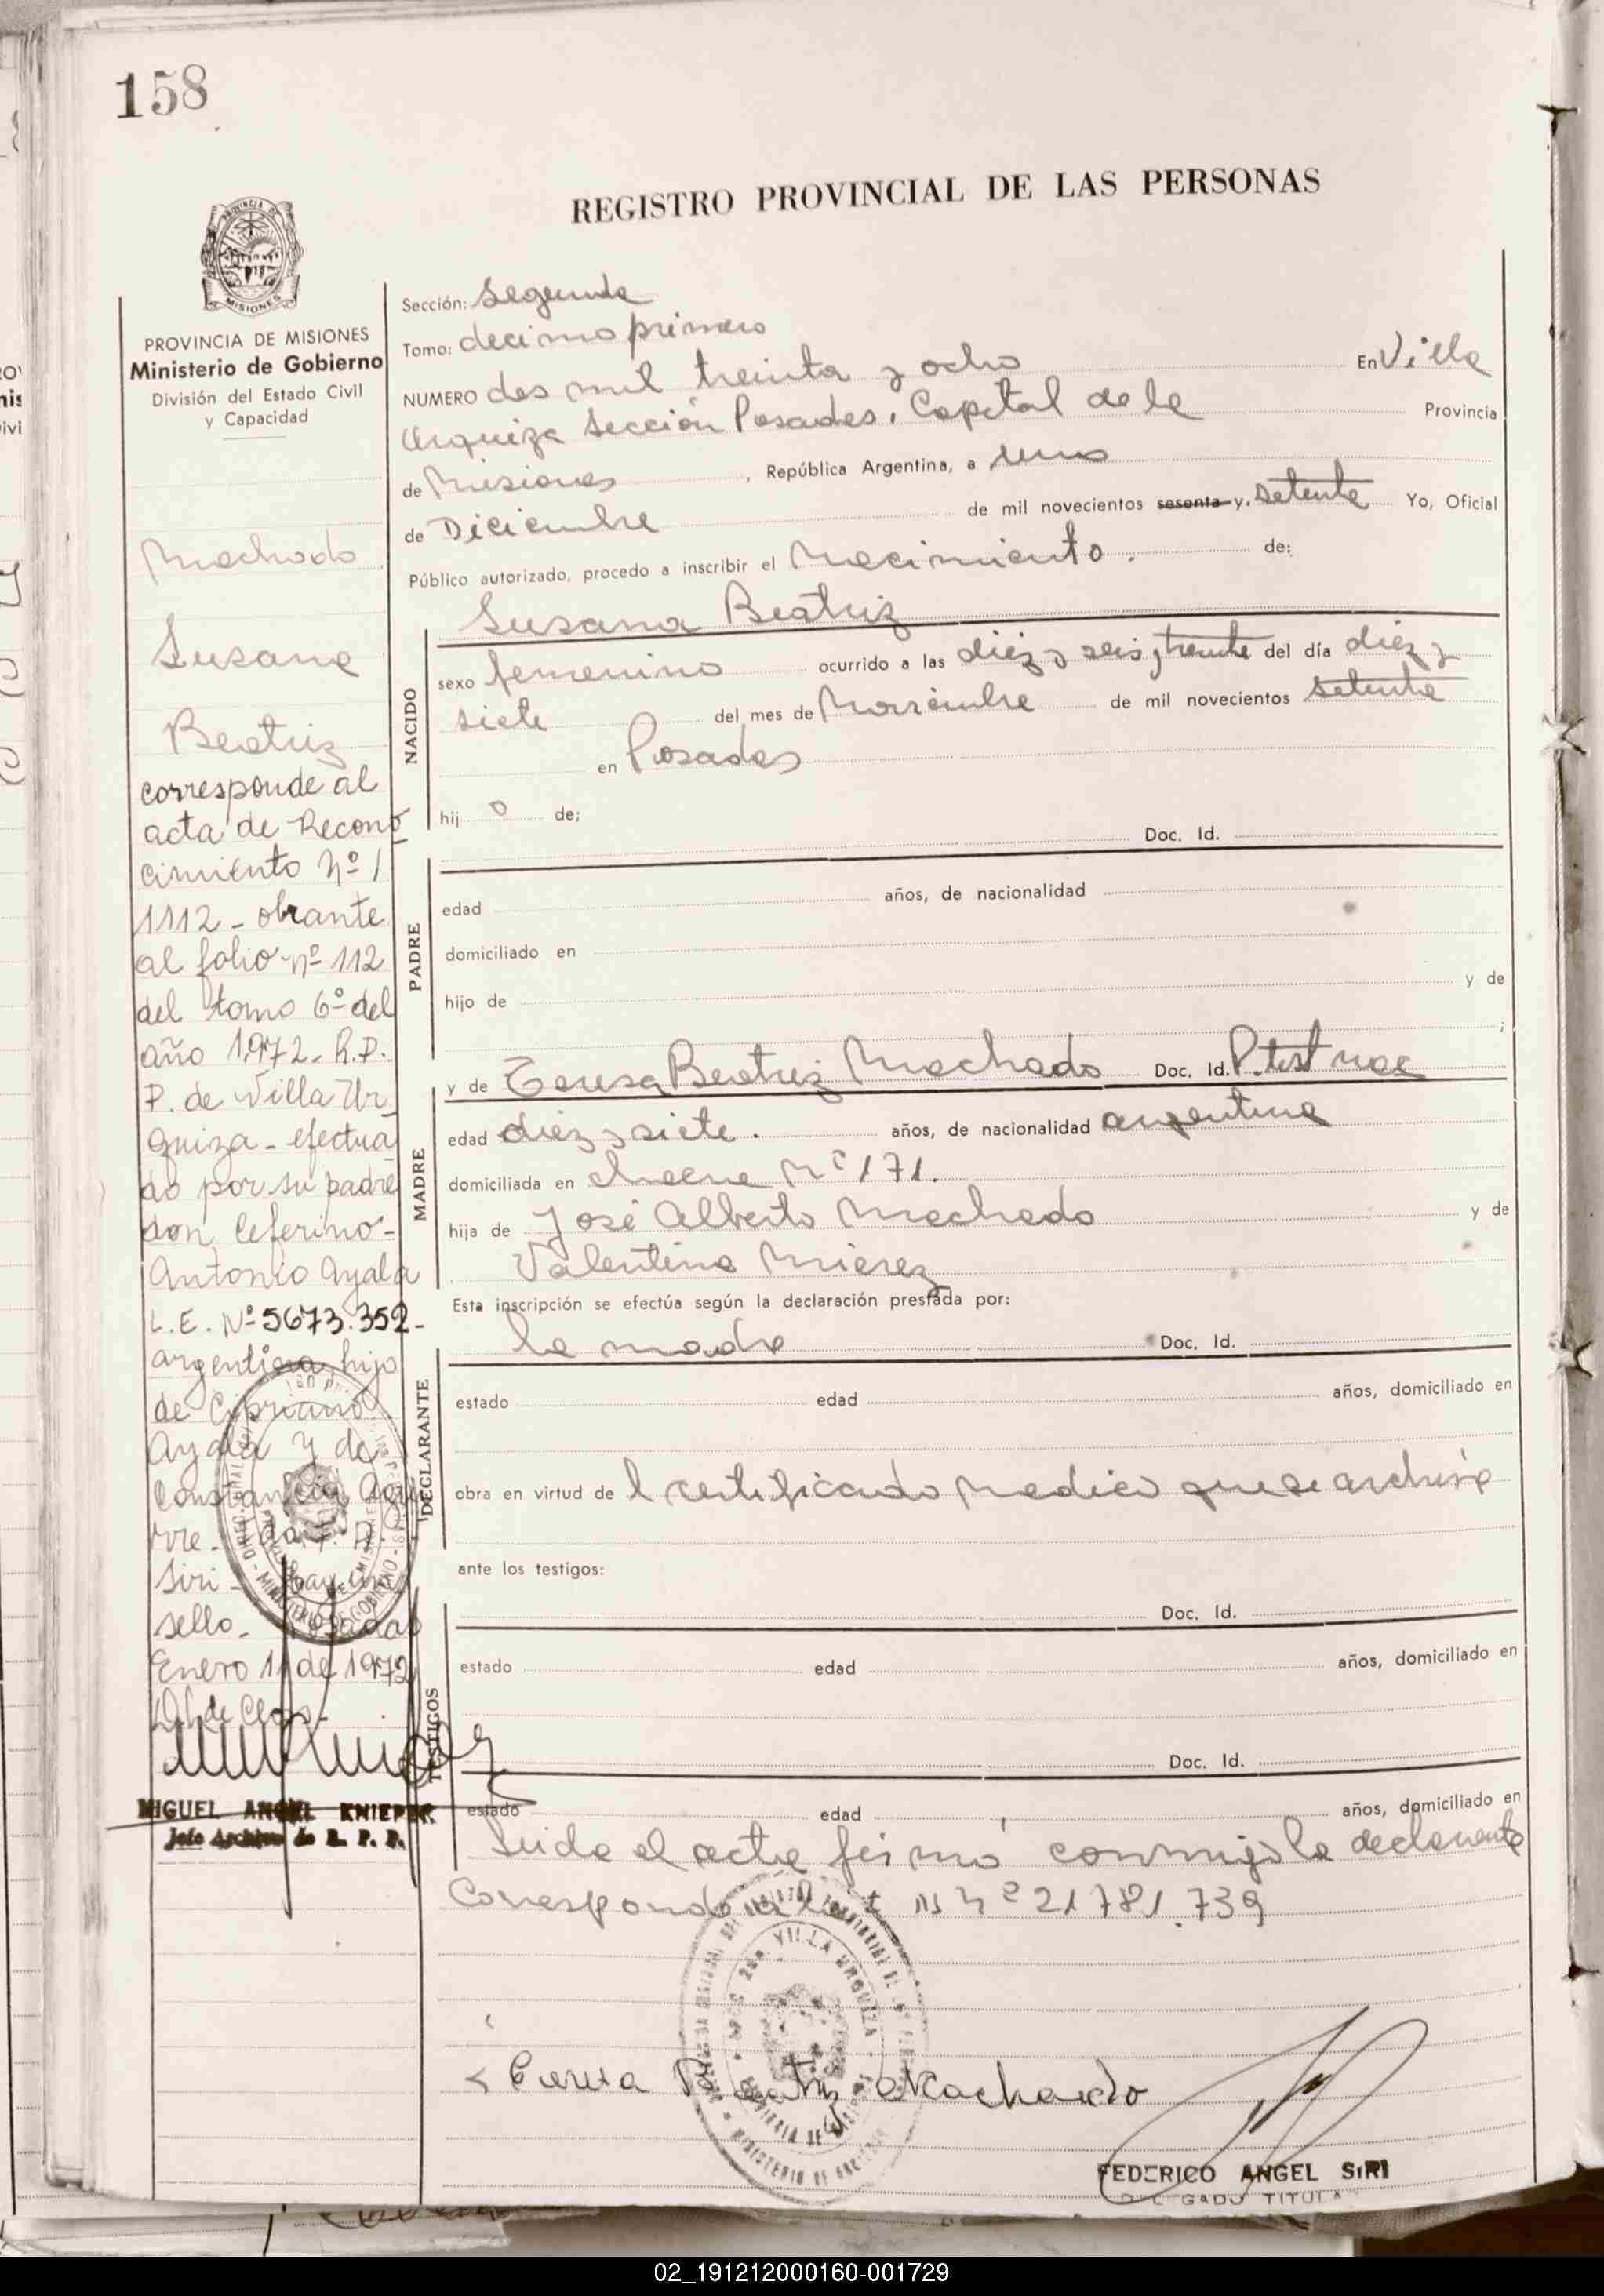 158
REGISTRO PROVINCIAL DE LAS PERSONAS
MISIONES
PROVINCIA DE MISIONES
Ministerio de Gobierno
División del Estado Civil
y Capacidad
Machado
Susana
Beatriz
corresponde al
acta de Recono
cimiento Nº 1
1112 - obrante
al folio nº 112
del tomo 6º del
año 1972. R.P.
P. de Villa Ur
quiza - efectua
do por su padre
don Ceferino -
Antonio Ayala
L.E. Nº 5673.352 -
argentino hijo
de Cipriano
Ayala y de
Constancia Agui
rre.
Siri - hay un
sello. Posadas
Enero 11 de 1972
MIGUEL ANGEL KNIEPER
Jefe Archivo de R. P. P.
Sección: Segunda
Tomo: decimo primero
NUMERO dos mil treinta y ocho En Villa
Urquiza Sección Posadas, Capital de la Provincia
de Misiones, República Argentina, a uno
de Diciembre de mil novecientos sesenta y. setenta Yo, Oficial
Público autorizado, procedo a inscribir el Nacimiento. de:
Susana Beatriz
NACIDO
sexo femenino ocurrido a las diez y seis y treinta del día diez y
siete del mes de Noviembre de mil novecientos setenta
en Posadas
hij o de;
Doc. Id.
PADRE
edad años, de nacionalidad
domiciliado en
hijo de y de
;
y de Teresa Beatriz Machado Doc. Id. P. test nac
MADRE
edad diez y siete. años, de nacionalidad argentina
domiciliada en chacra Nº 171.
hija de José Alberto Machado y de
Valentina Mierez
Esta inscripción se efectúa según la declaración prestada por:
la madre Doc. Id.
DECLARANTE
estado edad años, domiciliado en
obra en virtud de l certificado medico que se archiva
ante los testigos:
Doc. Id.
TESTIGOS
estado edad años, domiciliado en
Doc. Id.
estado edad años, domiciliado en
Leida el acta firmó conmigo la declarante
Corresponde Nº 21.781.739
VILLA URQUIZA
Teresa Beatriz Machado
FEDERICO ANGEL SIRI
DELEGADO TITULAR
02_191212000160-001729